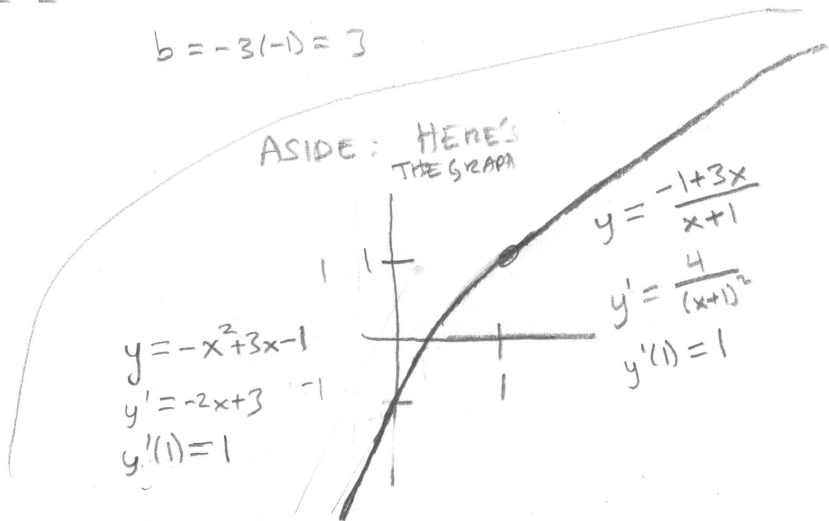 b = -3(-1) = 3
ASIDE: HERE'S
THE GRAPH
y = (-1+3x)/(x+1)
1 1
y' = 4/(x+1)²
y = -x²+3x-1
y'(1) = 1
y' = -2x+3
-1
1
y'(1) = 1